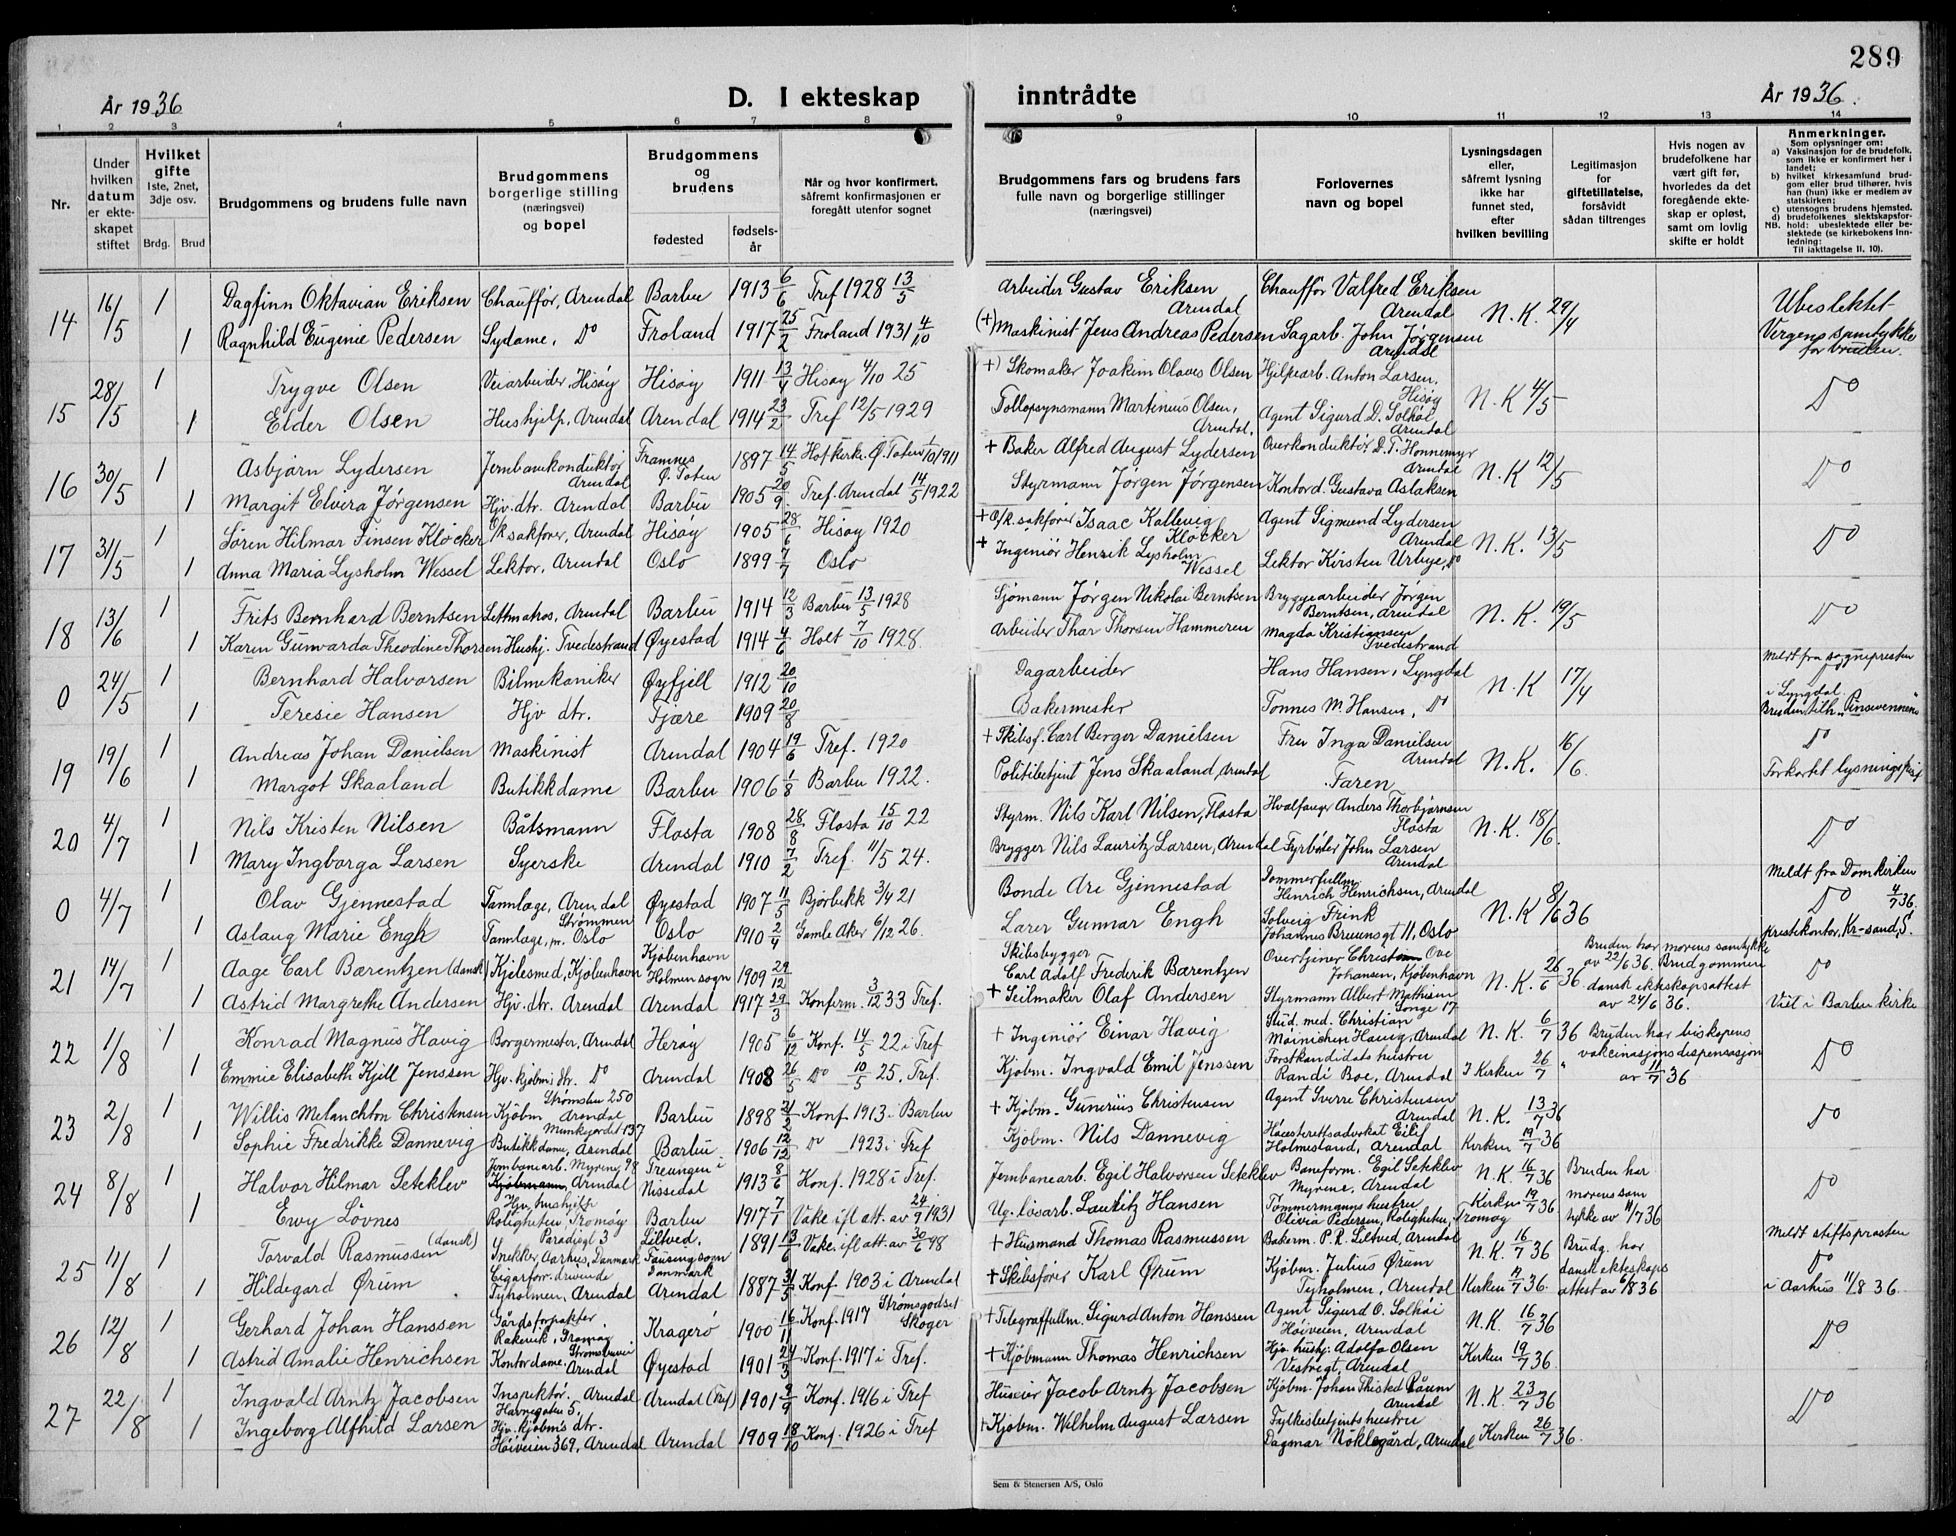 289
År 1936
D. I ekteskap inntrådte
År 1936.
1 2 3 4 5 6 7 8 9 10 11 12 13 14
Nr.
Under hvilken datum er ekteskapet stiftet
Hvilket gifte
1ste, 2net, 3dje osv.
Brdg. Brud
Brudgommens og brudens fulle navn
Brudgommens borgerlige stilling (næringsvei) og bopel
Brudgommens og brudens
fødested
fødselsår
Når og hvor konfirmert, såfremt konfirmasjonen er foregått utenfor sognet
Brudgommens fars og brudens fars fulle navn og borgerlige stillinger (næringsvei)
Forlovernes navn og bopel
Lysningsdagen eller, såfremt lysning ikke har funnet sted, efter hvilken bevilling
Legitimasjon for giftetillatelse, forsåvidt sådan tiltrenges
Hvis nogen av brudefolkene har vært gift før, hvorledes da det foregående ekteskap er opløst, samt om lovlig skifte er holdt
Anmerkninger.
Som oplysninger om:
a) Vaksinasjon for de brudefolk, som ikke er konfirmert her i landet;
b) hvilket kirkesamfund brudgom eller brud tilhører, hvis han (hun) ikke er medlem av statskirken;
c) utensogns brudens hjemsted.
d) brudefolkenes slektskapsforhold: ubeslektede eller beslektede (se kirkebokens innledning:
NB. Til iakttagelse II. 10).
14 16/5 1 Dagfinn Oktavian Eriksen Chauffør, Arendal Barbu 1913 6/6 Tref 1928 13/5 Arbeider Gustav Eriksen Arendal Chauffør Valfred Eriksen Arendal N. K. 29/4 Ubeslektet
1 Ragnhild Eugenie Pedersen Sydame, Do Froland 1917 25/2 Froland 1931 4/10 (+) Maskinist Jens Andreas Pedersen Sagarb. John Jørgensen Arendal Vergens samtykke for bruden.
15 28/5 1 Trygve Olsen Veiarbeider, Hisøy Hisøy 1911 13/4 Hisøy 4/10 25 +) Skomaker Joakim Olaves Olsen Hjelpearb. Anton Larsen, Hisøy N. K 4/5 Do
1 Elder Olsen Hushjelp, Arendal Arendal 1914 23/2 Tref 12/5 1929 Tollopsynsmann Martinius Olsen, Arendal. Agent Sigurd D. Solhøi Arendal
16 30/5 1 Asbjørn Lydersen Jernbanekonduktør Arendal Framnes Ø. Toten 1897 14/5 Hof kerke Ø. Toten 1/10 1911 + Baker Alfred August Lydersen Overkonduktør D. T. Honnemyr Arendal N. K 12/5 Do
1 Margit Elvira Jørgensen Hjv. dtr. Arendal Barbu 1905 20/9 Tref. Arendal 14/5 1922 Styrmann Jørgen Jørgensen Kontord. Gustava Aslaksen
17 31/5 1 Søren Hilmar Finsen Kløcker O/R sakfører, Arendal Hisøy 1905 28/6 Hisøy 1920 + O/R. sakfører Isaac Kallevig Kløcker Agent Sigmund Lydersen Arendal N. K. 13/5 Do
1 Anna Maria Lysholm Wessel Lektor, Arendal Oslo 1899 7/7 Oslo + Ingeniør Henrik Lysholm Wessel Lektor Kirsten Urbye, Do
18 13/6 1 Frits Bernhard Berntsen Lettmatros, Arendal Barbu 1914 12/3 Barbu 13/5 1928 Sjømann Jørgen Nikolai Berntsen Bryggearbeider Jørgen Berntsen, Arendal N. K. 19/5 Do
1 Karen Gunvarda Theodine Thorsen Hushj. Tvedestrand Øyestad 1914 4/6 Holt 7/10 1928 Arbeider Thar Thorsen Hammeren Magda Kristiansen Tvedestrand
0 24/5 1 Bernhard Halvorsen Bilmekaniker Øyfjell 1912 20/10 Dagarbeider Hans Hansen, Lyngdal N. K 17/4 Meldt fra sognepresten i Lyngdal.
1 Teresie Hansen Hjv dtr. Fjære 1909 20/8 Bakermester Tønnes M. Hansen, Do Bruden tilh. "Pinsevennene"
19 19/6 1 Andreas Johan Danielsen Maskinist Arendal 1904 19/6 Tref. 1920 + Skibsf. Carl Berger Danielsen Fru Inga Danielsen Arendal N. K. 16/6 Do
1 Margot Skaaland Butikkdame Barbu 1906 1/8 Barbu 1922. Politibetjent Jens Skaaland, Arendal Faren Forkortet lysningsfrist
20 4/7 1 Nils Kristen Nilsen Båtsmann Flosta 1908 28/8 Flosta 15/10 22 Styrm. Nils Karl Nilsen, Flosta Hvalfanger Anders Thorbjørnsen Flosta N. K. 18/6. Do
1 Mary Ingborga Larsen Syerske Arendal 1910 7/2 Tref. 11/5 24. Brygger Nils Lauritz Larsen, Arendal Fyrbøter John Larsen Arendal
0 4/7 1 Olav Gjennestad Tannlæge, Arendal Strømmen Øyestad 1907 11/5 Bjorbekk 3/4 21 Bonde Are Gjennestad Dommerfullm. Heinrich Henrichsen, Arendal N. K 8/6 36 Meldt fra Domkerken Do 4/7 36.
1 Aslaug Marie Engh Tannlæge, m. Oslo Oslo 1910 2/4 Gamle Aker 6/12 26. Lærer Gunnar Engh Solveig Frink Johannes Bruunsgt 11, Oslo prestekontor, Kr-sand, S.
21 14/7 1 Aage Carl Bærentzen (dansk) Kjelesmed, Kjøbenhavn Kjøbenhavn Holmen sogn 1909 29/12 Skibsbygger Carl Adolf Frederik Bærentzen Overtjener Christ Ove Johansen, Kjøbenhavn N. K. 26/6 36 Bruden har morens samtykke av 22/6 36. Brudgommen Do
1 Astrid Margrethe Andersen Hjv. dtr. Arendal Arendal 1917 29/3 Konferm. 3/12 33 Tref. + Seilmaker Olaf Andersen Styrmann Albert Mathisen Songe 17 dansk ekteskapsattest av 24/6 36. Viet i Barbu kirke
22 1/8 1 Konrad Magnus Havig Borgermester, Arendal Herøy 1905 6/12 Konf. 14/5 22 i Tref + Ingeniør Einar Havig Stud. med. Christian Meinichen Havig, Arendal N. K. 6/7 36 Bruden har biskopens Do
1 Emmie Elisabeth Kjell Jenssen Hjv. kjøbm. dtr. Do Arendal 1908 26/5 Do 10/5 25. Tref. Kjøbm. Ingvald Emil Jenssen Forstkandidats hustru Randi Boe, Arendal I Kerken 26/7 " vakcinasjonsdispensasjon av 11/7 36
23 2/8 1 Willis Melanchton Christensen Kjøbm. Strømsbu 250 Arendal Barbu 1898 21/2 Konf. 1913 i Barbu + Kjøbm. Gunerius Christensen Agent Sverre Christensen Arendal N. K. 13/7 36 Do
1 Sophie Fredrikke Dannevig Munkejordet 137 Butikkdame, Arendal Barbu 1906 12/12 Do 1923 i Tref Kjøbm. Nils Dannevig Høiesterettsadvokat Eilif Holmesland, Arendal Kerken 19/7 36
24 8/8 1 Halvor Hilmar Seteklev Jernbanearb. Myrene 98 Kjøbmann, Arendal Treungen i Nissedal 1913 8/6 Konf. 1928 i Tref. Jernbanearb. Egil Halvorsen Seteklev Baneform. Egil Seteklev Myrene, Arendal N. K. 16/7 36 Bruden har
1 Ewy Løvnes Hjv. hushjelp Roligheten, Tromøy Barbu 1917 7/1 Vakc. ifl att. av 24/9 1931 Ug. løsarb. Lauritz Hansen Tømmermanns hustru Olivia Pedersen, Roligheten, Tromøy Kerken 19/7 36 morens samtykke av 11/7 36 Do
25 11/8 1 Torvald Rasmussen (dansk) Paradisgt 3 Snekker, Aarhus, Danmark Liltved, Tausing sogn Danmark 1891 13/6 Vakc. ifl att. av 30/6 98 + Husmand Thomas Rasmussen Bakerm. P. R. Liltved, Arendal N. K. 16/7 36 Brudg. har Meldt stiftsprosten Do
1 Hildegard Ørum Cigarforr. drivende Tyholmen, Arendal Arendal 1887 31/5 Konf. 1903 i Arendal + Skibsfører Karl Ørum Kjøbm. Julius Ørum Tyholmen, Arendal Kerken 19/7 36. dansk ekteskapsattest av 6/8 36 i Aarhus 11/8 36.
26 12/8 1 Gerhard Johan Hanssen Gårdsforpakter, Rakevik, Tromøy Kragerø 1900 16/11 Konf. 1917 Strømsgodset Skoger + Telegraffullm. Sigurd Anton Hanssen Agent Sigurd O. Solhøi Høiveien, Arendal N. K. 16/7 36 Do
1 Astrid Amalie Henrichsen Kontordame, Strømsbuvei Arendal Øyestad 1901 24/3 Konf. 1917 i Tref. + Kjøbmann Thomas Henrichsen Hjv. hushj. Adolfa Olsen Vestregt, Arendal Kerken 19/7 36.
27 22/8 1 Ingvald Arntz Jacobsen Inspektør. Arendal Havnegaten 5. Arendal (Tref) 1901 9/9 Konf. 1916 i Tref Huseier Jacob Arntz Jacobsen Kjøbm. Johan Thisted Arendal N. K. 23/7 36 Do
1 Ingeborg Alfhild Larsen Hjv. kjøbm's dtr. Høiveien 369, Arendal Arendal 1909 18/10 Konf. 1926 i Tref + Kjøbm. Wilhelm August Larsen Fylkesbetjents hustru Dagmar Nöklegård, Arendal Kerken 26/7 36.
Sem & Stenersen A/S, Oslo